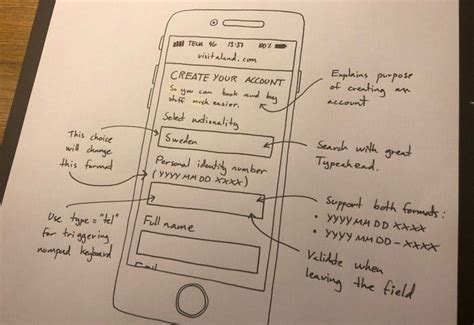 TELIA 4G 13:37 80%
visitaland.com
CREATE YOUR ACCOUNT
So you can book and buy
stuff much easier.
Select nationality
Sweden
Personal identity number
(YYYY MM DD XXXX)
Full name
Email
Explains purpose
of creating an
account
This choice
will change
this format
Search with great
Typeahead.
Use type="tel"
for triggering
numpad keyboard
Support both formats:
• YYYY MM DD XXXX
• YYYY MM DD-XXXX
Validate when
leaving the field